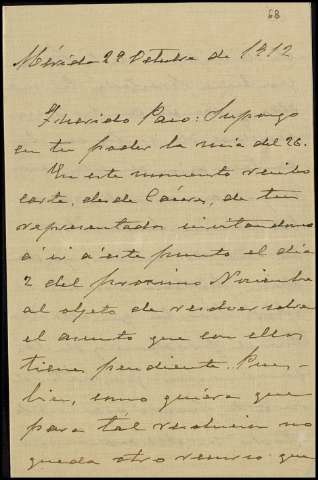 68
Mérida 29 Octubre de 1912
Querido Paco: Supongo
en tu poder la mia del 26.
En este momento recibo
carta, desde Cáceres, de tu
representado invitandome
á ir á este punto el dia
2 del proximo Noviembre
al objeto de resolver sobre
el asunto que con ellos
tiene pendiente. Pues
bien, como quiera que
para tál resolucion no
queda otro recurso que